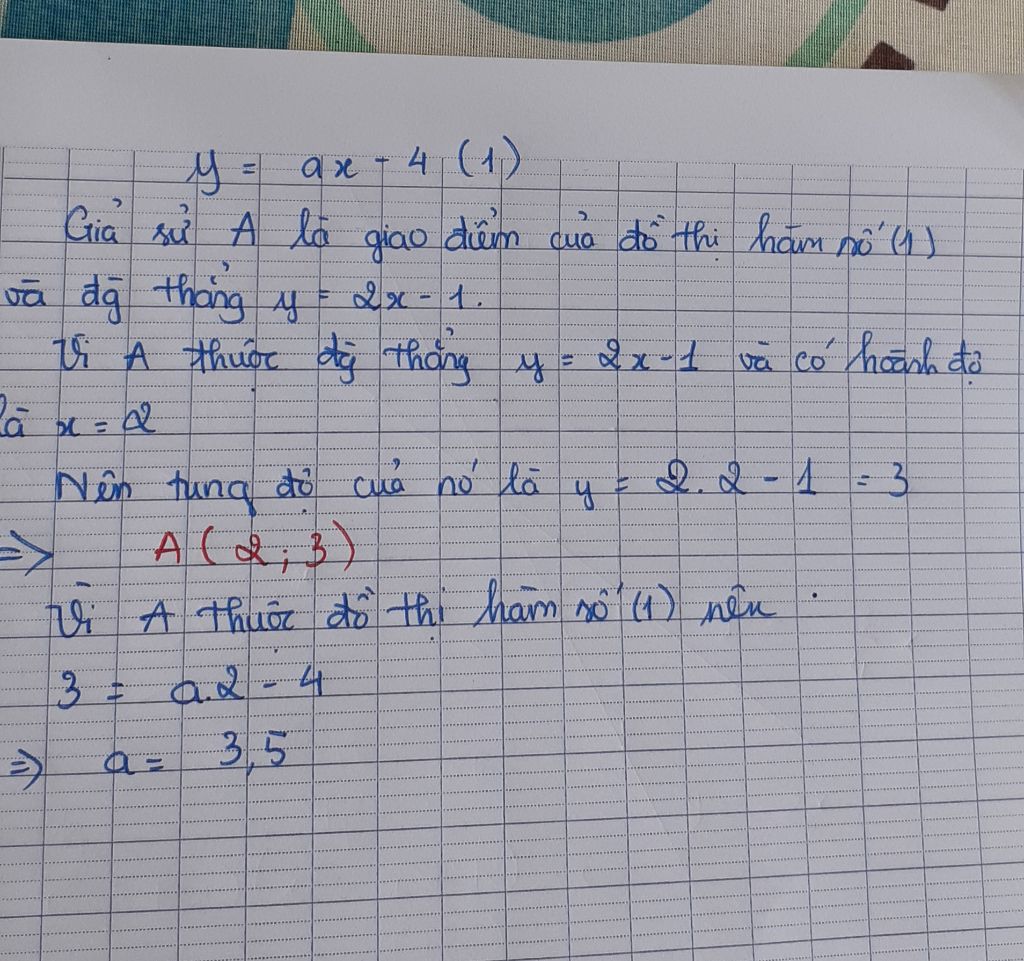 y = ax - 4 (1)
Giả sử A là giao điểm của đồ thị hàm số (1)
và đg thẳng y = 2x - 1.
Vì A thuộc đg thẳng y = 2x - 1 và có hoành độ
là x = 2
Nên tung độ của nó là y = 2.2 - 1 = 3
=> A (2; 3)
Vì A thuộc đồ thị hàm số (1) nên
3 = a.2 - 4
=> a = 3,5